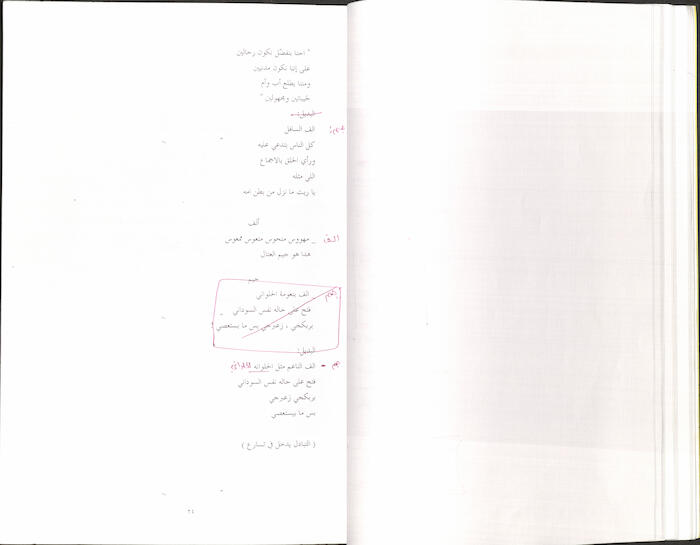 " احنا بنفضّل نكون رجالين
على إننا نكون مدنيين
ومننا يطلع أب وأم
خيبانين ومجهولين "
البديل:
جيم: الف السافل
كل الناس بتدعي عليه
ورأي الخلق بالاجماع
اللي مثله
يا ريت ما نزل من بطن امه
ألف
الف _ مهووس منحوس متعوس ممعوس
هدا هو جيم العتال
جيم
جيم _ الف بنعومة الحلواني
فتح على حاله نفس السوداني
بربكجي ، زعبرجي بس ما بيستعصي
البديل:
جيم - الف الناعم مثل الحلوانه
فتح على حاله نفس السوداني
بربكجي زعبرجي
بس ما بيستعصي
( التبادل يدخل في تسارع )
٢٤